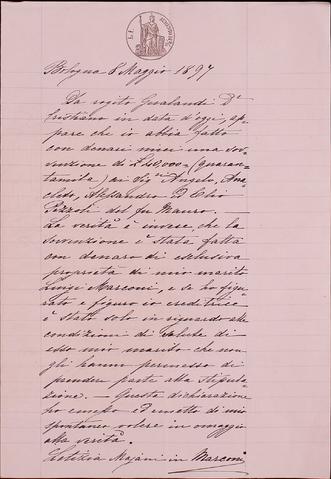 Bologna 8 Maggio 1897
Da rogito Gualandi Dr
Cristiano in data d'oggi, ap-
pare che io abbia fatto
con denari miei una sov-
venzione di £ 40,000= (quaran-
tamila) ai Sigri Angelo, Ana-
cleto, Alessandro e Clio
Pizzoli del fu Mauro. —
La verità è invece, che la
sovvenzione è stata fatta
con denaro di esclusiva
proprietà di mio marito
Luigi Marconi, e se ho figu-
rato e figuro io creditrice
è stato solo in riguardo alle
condizioni di salute di
esso mio marito che non
gli hanno permesso di
prender parte alla stipula-
zione. — Questa dichiarazione
ho emesso ed emetto di mio
spontaneo volere in omaggio
alla verità.
Letizia Majani in Marconi